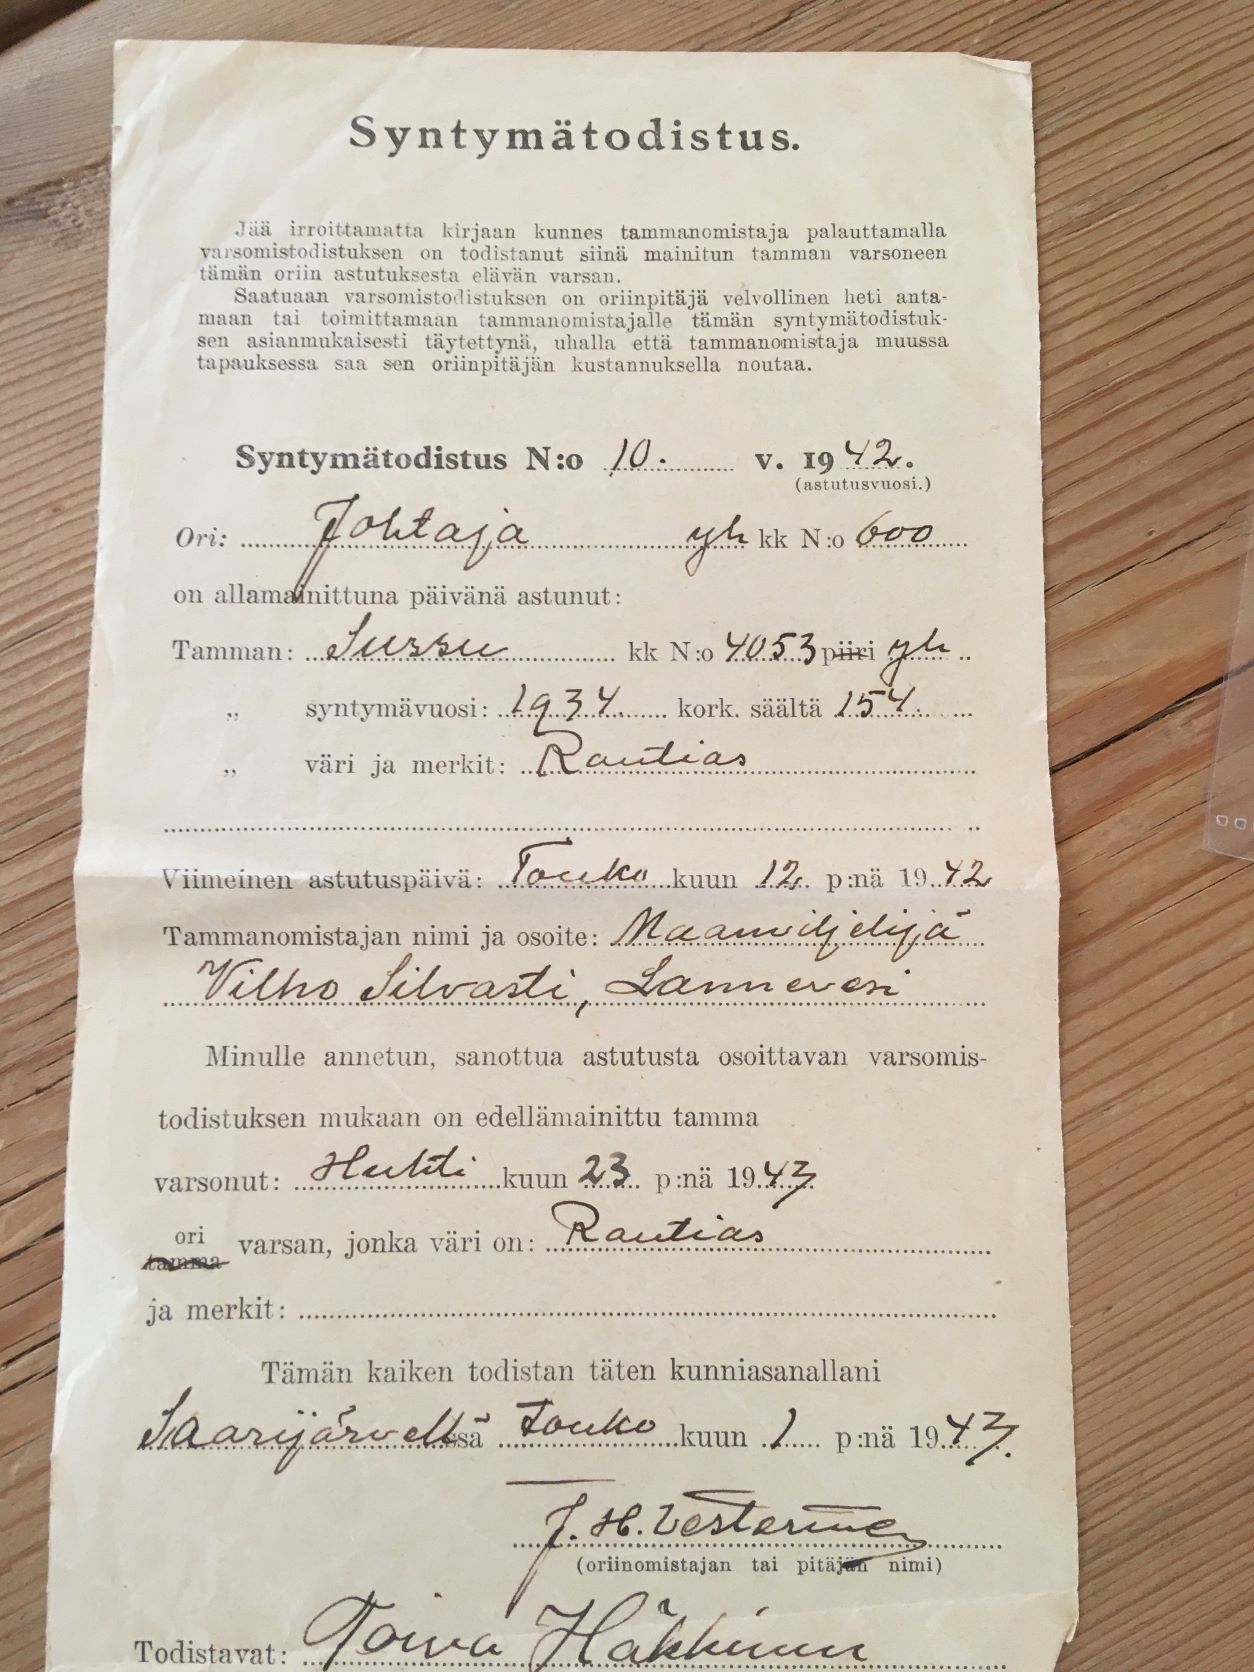 Syntymätodistus.
Jää irroittamatta kirjaan kunnes tammanomistaja palauttamalla
varsomistodistuksen on todistanut siinä mainitun tamman varsoneen
tämän oriin astutuksesta elävän varsan.
Saatuaan varsomistodistuksen on oriinpitäjä velvollinen heti anta-
maan tai toimittamaan tammanomistajalle tämän syntymätodistuk-
sen asianmukaisesti täytettynä, uhalla että tammanomistaja muussa
tapauksessa saa sen oriinpitäjän kustannuksella noutaa.
Syntymätodistus N:o 10. v. 1942.
(astutusvuosi.)
Ori: Johtaja yh kk N:o 600
on allamainittuna päivänä astunut:
Tamman: Sussu kk N:o 4053 piiri yh
„ syntymävuosi: 1934. kork. säältä 154.
„ väri ja merkit: Rautias
Viimeinen astutuspäivä: Touko kuun 12. p:nä 1942
Tammanomistajan nimi ja osoite: Maanviljelijä
Vilho Silvasti, Lannevesi
Minulle annetun, sanottua astutusta osoittavan varsomis-
todistuksen mukaan on edellämainittu tamma
varsonut: Huhti kuun 23 p:nä 1943
ori
tamma varsan, jonka väri on: Rautias
ja merkit:
Tämän kaiken todistan täten kunniasanallani
Saarijärvellssä Touko kuun 1 p:nä 1943.
J. H.
(oriinomistajan tai pitäjän nimi)
Todistavat: Toivo Häkkinen